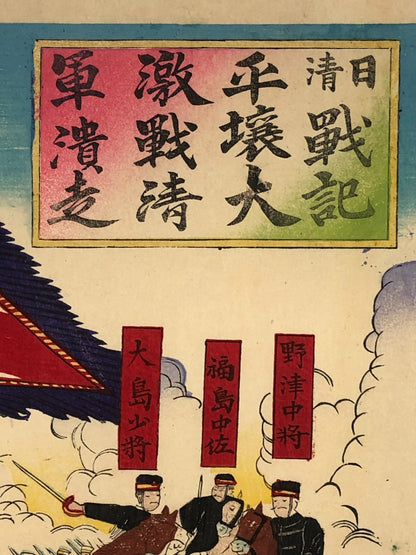 日清
戰記
平壤大
激戰清
軍潰走
野津中將
福島中佐
大島少將